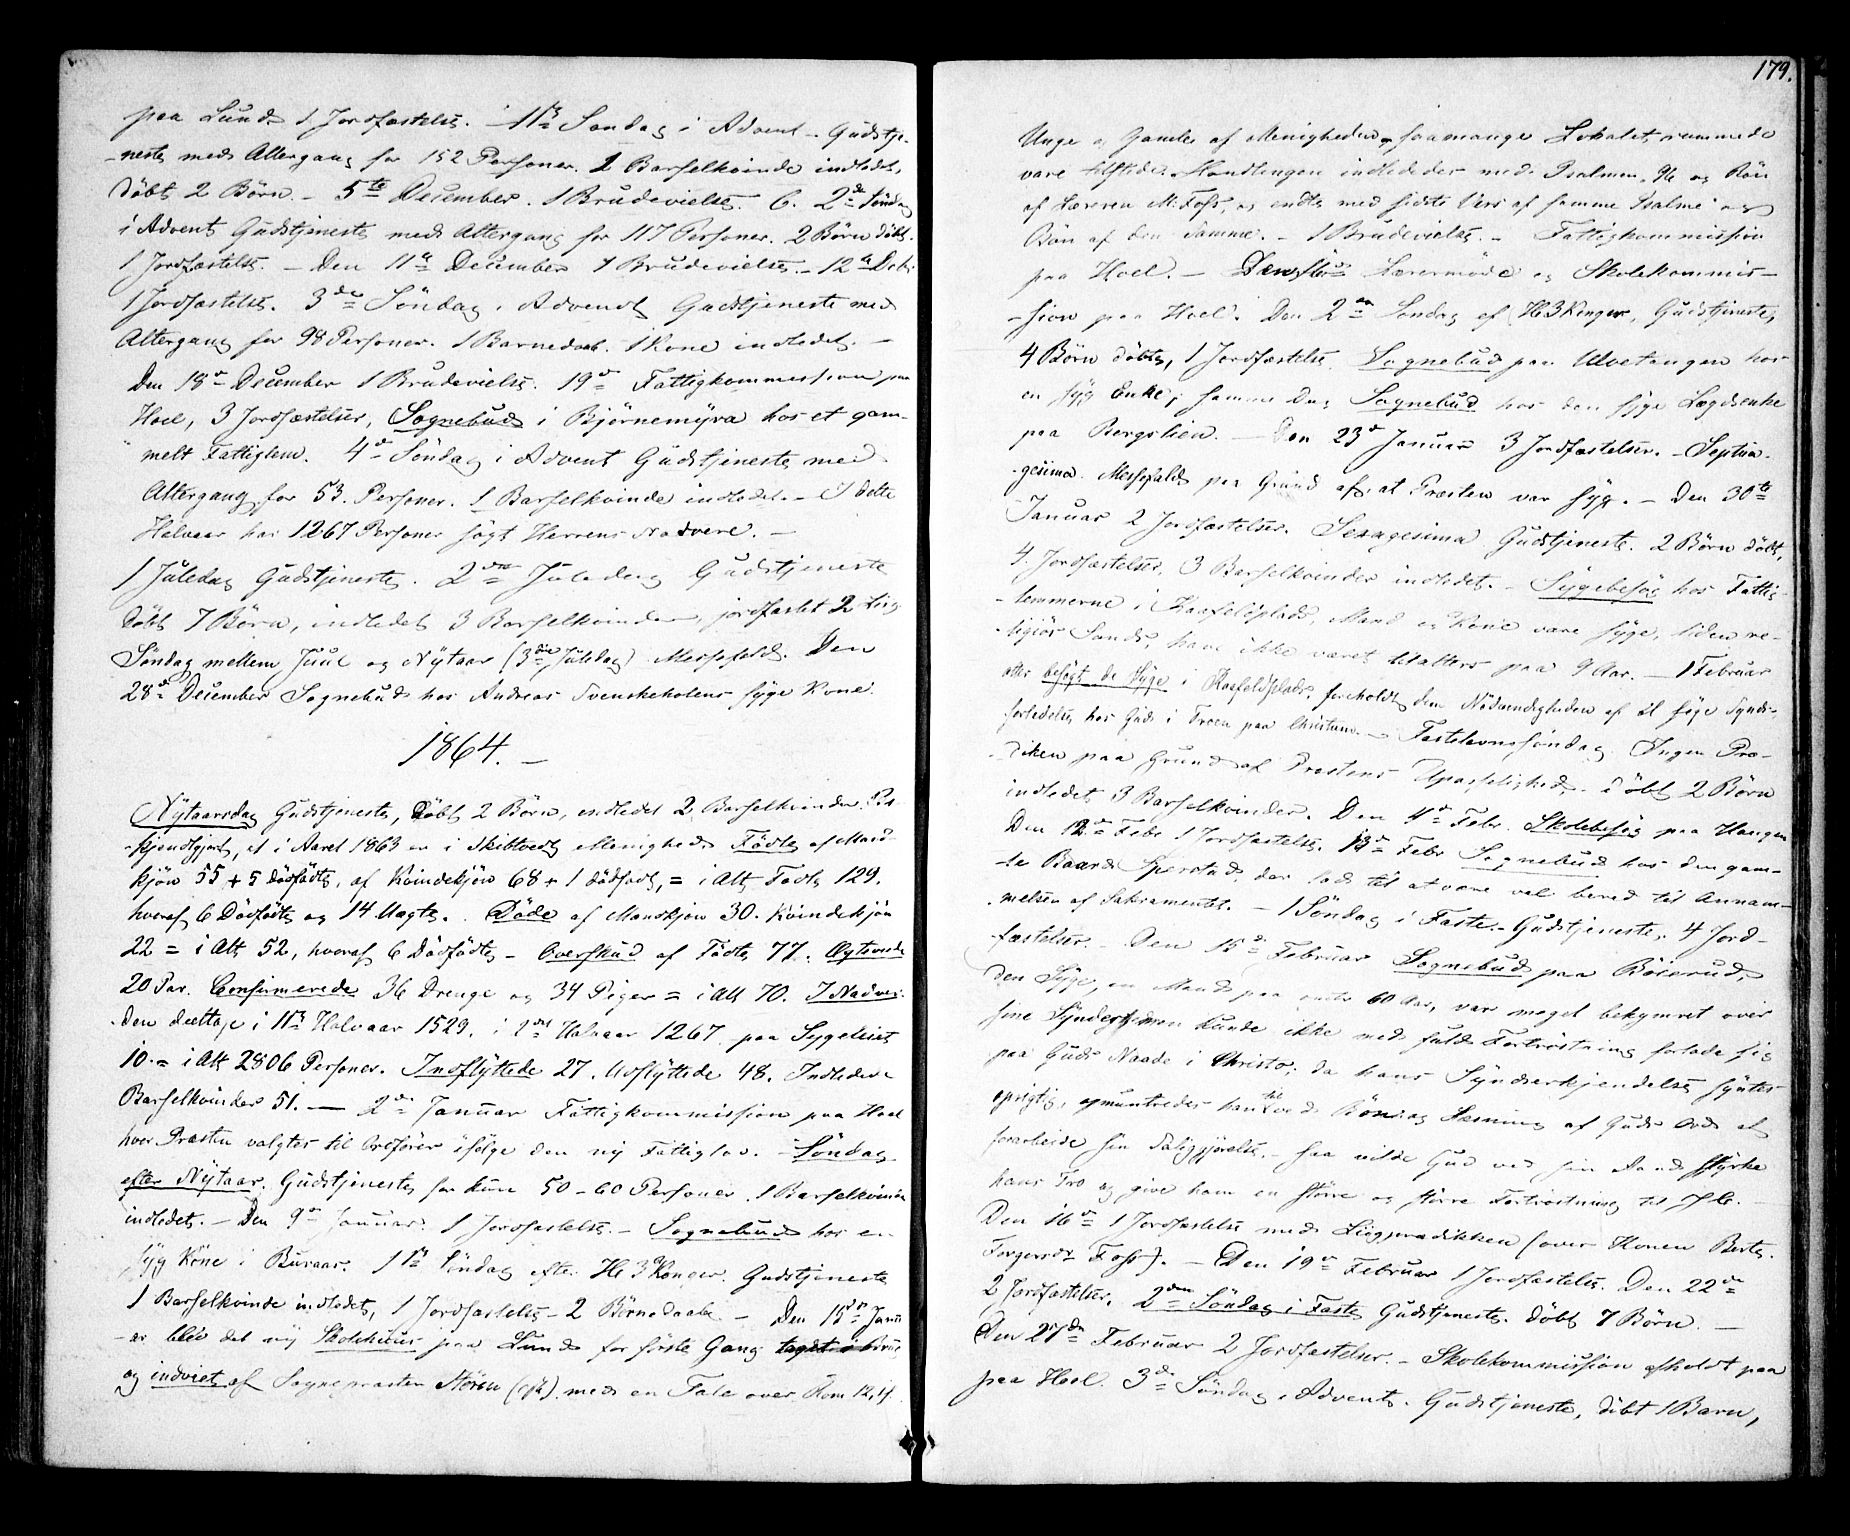 paa Lund 1 Jordfæstelse. – 1ste Søndag i Advent – Gudstje-
neste med Altergang for 152 Personer. 2 Barselkvinde indledet,
døbt 2 Børn. – 5te December. 1 Brudevielse. 6. 2de Søndag
i Advent Gudstjeneste med Altergang for 117 Personer. 2 Børn døbt.
1 Jordfæstelse. – Den 11te December 1 Brudevielse. – 12te Decbr
1 Jordfæstelse. 3die Søndag i Advent Gudstjeneste med
Altergang for 98 Personer. 1 Barnedaab. 1 Kone indledet. –
Den 18de December 1 Brudevielse. 19de Fattigkommission paa
Hoel, 3 Jordfæstelser, Sognebud i Bjørnemyra hos et gam-
melt Fattiglem. 4de Søndag i Advent Gudstjeneste med
Altergang for 53 Personer. 1 Barselkvinde indledet. – I dette
Halvaar har 1267 Personer søgt Herrens Nadvere. –
1 Juledag Gudstjeneste. 2den Juledag Gudstjeneste
døbt 7 Børn, indledet 3 Barselkvinder, jordfæstet 2 Liig
Søndag mellem Juul og Nytaar (3die Juledag) Messefald. Den
28de December Sognebud hos Andreas Svenskeholens syge Kone.
1864. –
Nytaarsdag Gudstjeneste, Døbt 2 Børn, indledet 2 Barselkvinder. Be-
kjendtgjort, at i Aaret 1863 er i Skibtvedt Menighed Fødte af Mand-
kjøn 55 + 5 dødfødte, af Kvindekjøn 68 + 1 dødfødt, = i Alt Fødte 129.
hvoraf 6 Dødfødte og 14 Uægte. Døde af Mandkjøn 30. Kvindekjøn
22 = i Alt 52, hvoraf 6 Dødfødte – Overskud af Fødte 77. Ægteviede
20 Par. Confirmerede 36 Drenge og 34 Piger = i Alt 70. I Nadve-
ren deeltage i 1ste Halvaar 1529, i 2det Halvaar 1267 paa Sygeleiet
10. = i Alt 2806 Personer. Indflyttede 27. Udflyttede 48. Indledede
Barselkvinder 51. – 2den Januar Fattigkommission paa Hoel
hvor Præsten valgtes til Ordfører ifølge den ny Fattiglov. – Søndag
efter Nytaar. Gudstjeneste for kun 50 – 60 Personer. 1 Barselkvinde
indledet. – Den 9de Januar 1 Jordfæstelse. – Sognebud hos en
syg Kone i Buraas. 1ste Søndag efter He 3 Konger. Gudstjeneste
1 Barselkvinde indledet, 1 Jordfæstelse – 2 Børnedaab – Den 15de Janu-
ar blev det ny Skolehuus paa Lund for første Gang taget i Brug
og indviet af Sognepræsten Støren med en Tale over Rom
179.
Unge og Gamle af Menigheden, saamange Lokalet rummede
vare tilstede. Handlingen indlededes med Psalmen 96 og Bøn
af Læreren M. Foss, og endte med sidste Vers af samme Psalme og
Bøn af den Samme. – 1 Brudevielse. – Fattigkommission
paa Hoel. – Lærermøde og Skolekommis-
sion paa Hoel. Den 2den Søndag ef. He 3 Konger, Gudstjeneste,
4 Børn døbte, 1 Jordfæstelse. Sognebud paa Ulvetangen hos
en syg Enke; samme Dag Sognebud hos den syge Lægdsenke
paa Bergslien. – Den 23de Januar 3 Jordfæstelser. – Septua-
gesima. Messefald paa Grund af, at Præsten var syg. – Den 30te
Januar 2 Jordfæstelser. Sexagesima Gudstjeneste. 2 Børn døbt,
4 Jordfæstelser, 3 Barselkvinder indledet. – Sygebesøg hos Fattig-
lemmerne i Kaasfeldplads, Mand og Kone vare syge, liden re-
ligiøs Sands, have ikke været tilalters paa 9 Aar. – 1 Februar
atter besøgt de Syge i Kaasfeldplads, foreholdt dem Nødvendigheden af at søge Synds-
forladelse hos Gud i Troen paa Christum. – Fastelavnssøndag. Ingen Præ-
diken paa Grund af Præstens Upasselighed. døbt 2 Børn
indledet 3 Barselkvinder. Den 11te Febr. Skolebesøg paa Haugen
Den 12te Febr 1 Jordfæstelse. 13de Febr Sognebud hos den gam-
le Baard Sperstad, der lod til at være vel bered til Annam-
melsen af Sakramentet. – 1 Søndag i Faste – Gudstjeneste. 4 Jord-
fæstelser. – Den 15de Februar Sognebud paa Bøierud,
den Syge, en Mand paa 60 Aar, var meget bekymret over
sine Synder kunde ikke med fuld Fortrøstning forlade sig
paa Guds Naade i Christo; da hans Synderkjendelse syntes
oprigtig, opmuntredes han til ved Bøn og Læsning af Guds Ord at
forarbeide sin Saliggjørelse. – Saa vilde Gud ved sin Aand styrke
hans Tro og give ham en større og større Fortrøstning til
Den 16de 1 Jordfæstelse med Liigprædikken (over Konen Berte
Torgersdr Foss). – Den 19de Februar 1 Jordfæstelse. Den 22de
2 Jordfæstelser. 2den Søndag i Faste Gudstjeneste. døbt 7 Børn. –
Den 27de Februar 2 Jordfæstelser. – Skolekommission afholdt paa
paa Hoel. 3de Søndag i Advent. Gudstjeneste, døbt 1 Barn,